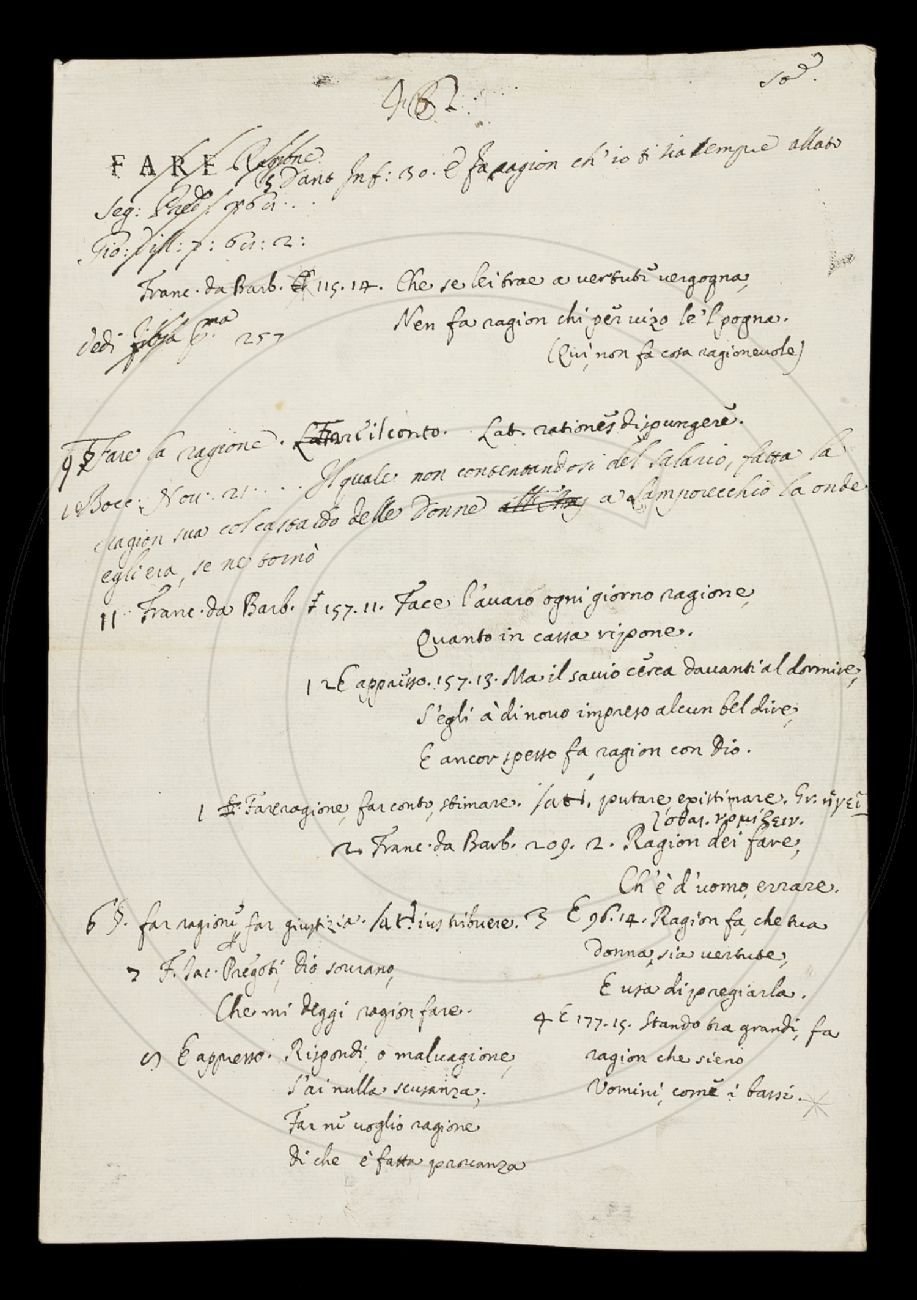 962
FARE Ragione
5 Dant Inf: 30. E fa ragion ch'io ti sia sempre allato
Seg:
Gio: Vill: 7: 61: 2:
Franc. da Barb. 115. 14. Che se lei trae a vertuti vergogna,
Non fa ragion chi per vizo le'l pogna.
Vedi 257
(Qui, non fa cosa ragionevole)
9 Fare la ragione. Fare il conto. Lat. rationes dispungere.
10 Bocc. Nov. 21 . . . . Il quale non contentandosi del salario, fatta la
ragion sua col castaldo delle donne a Lamporecchio la onde
egli era, se ne tornò
11 Franc. da Barb. 157. 11. Face l'avaro ogni giorno ragione,
Quanto in cassa ripone.
12 E appresso. 157. 13. Ma il savio cerca davanti al dormire,
S'egli à di novo impreso alcun bel dire;
E ancor spesso fa ragion con Dio.
1 Far ragione, far conto, stimare. Lat. putare, existimare. Gr. ἡγεῖ
σθαι. νομίζειν.
2. Franc. da Barb. 209. 2. Ragion dei fare,
Ch'è d'uomo errare.
6 §. far ragione, far giustizia. Lat. ius tribuere.
3 E 96. 14. Ragion fa, che tua
donna, sia vertute,
E usa dispregiarla.
7 F. Jac. Pregoti, Dio sovrano,
Che mi deggi ragion fare.
4 E 177. 15. Stando tra grandi, fa
ragion che sieno
Vomini, come i bassi.
E appresso. Rispondi, o malvagione,
S'ai nulla scusanza;
Far ne voglio ragione
di che è fatta provanza